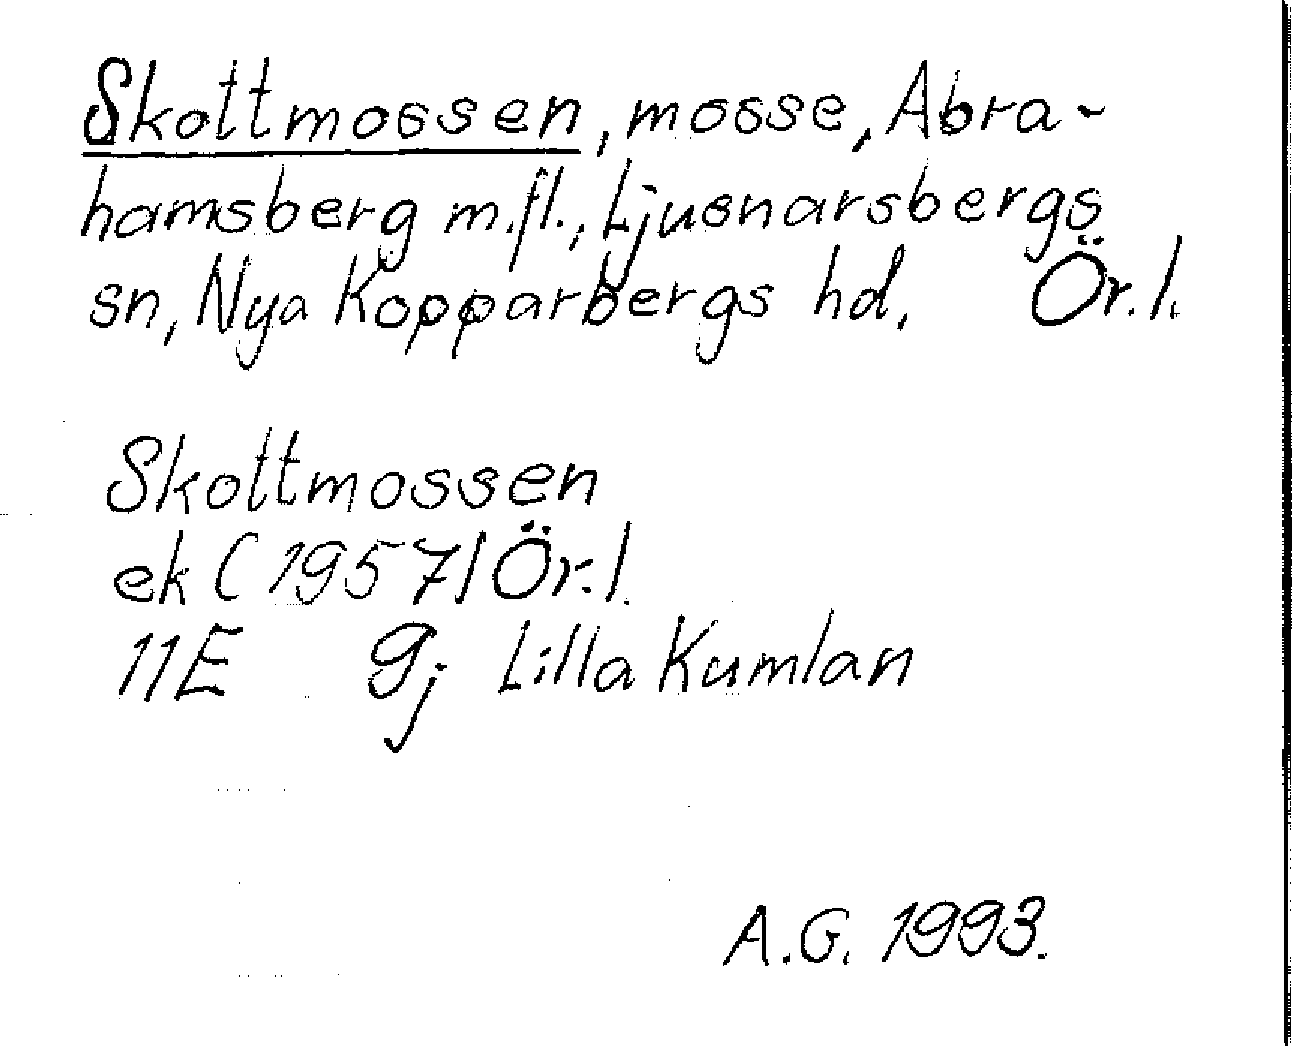 Skottmossen, mosse, Abra-
hamsberg m.fl., Ljusnarsbergs
sn, Nya Kopparbergs hd. Ör.l.
Skottmossen
ek (1957) Ör.l.
11E 9j Lilla Kumlan
A.G. 1993.